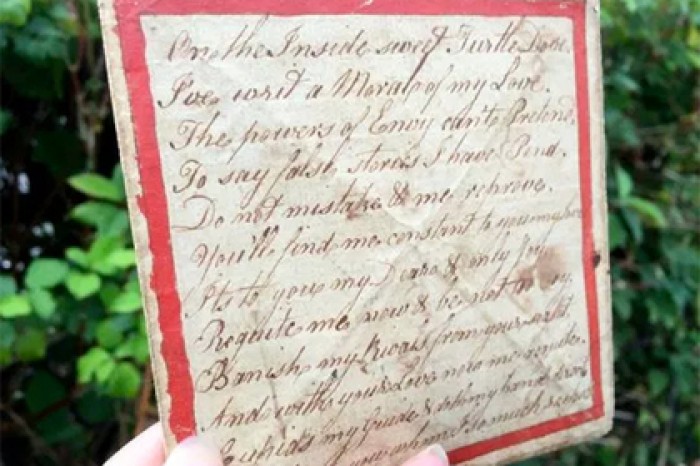 On the Inside sweet Turtle Dove
I've writ a Moral of my Love.
The powers of Envy can't Pretend,
To say false stories I have Pend.
Do not mistake & me reprove.
You'll find me constant to you my
Its to you my Deare & only Joy
Requite me now & be not
Banish my Rivals from your sight
And with your Love now me
my Guide & my hand
you whom so much